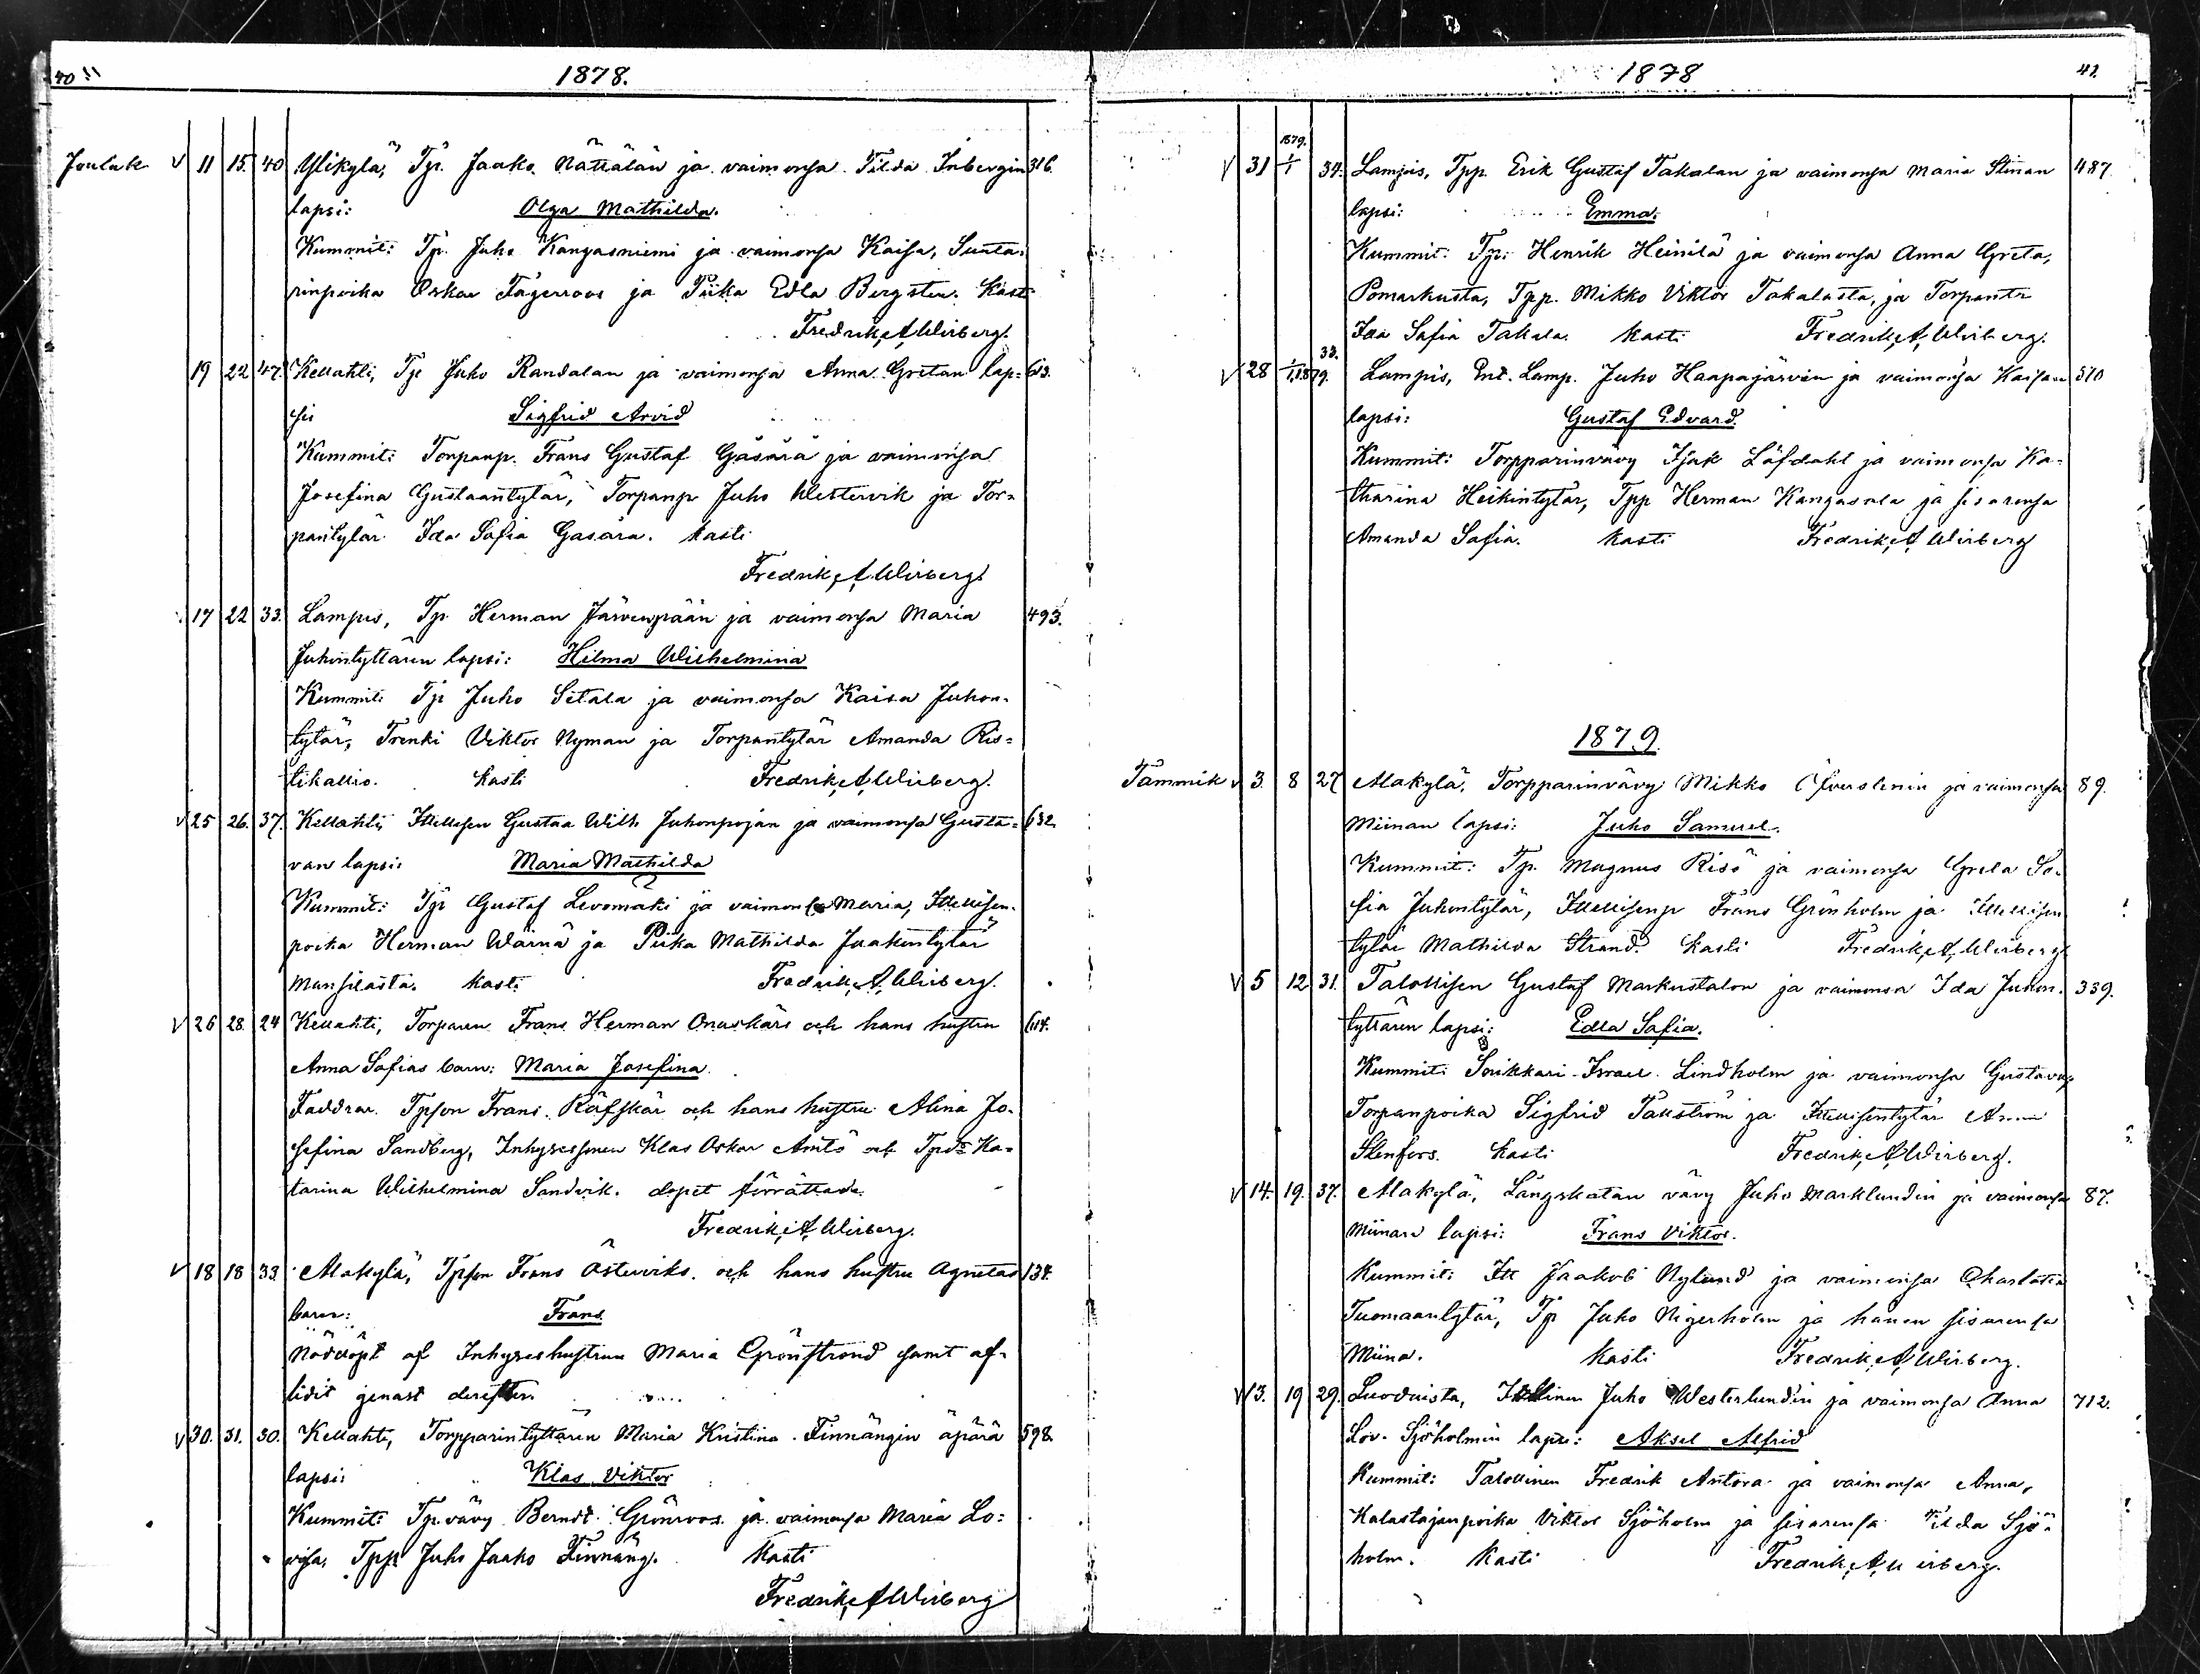 40
1878.
Jouluk. v 11 15. 40 Ylikylä, Tp. Jaako Nättälän ja vaimonsa Tilda Inbergin 316.
lapsi: Olga Mathilda.
Kummit: Tp. Juho Kangasniemi ja vaimonsa Kaisa, Suuta-
rinpoika Oskar Fagerroos ja Piika Edla Bergsten. Kasti
Fredrik A Wirberg.
19 22 47. Kellahti, Tp Juho Randalan ja vaimonsa Anna Gretan lap= 613.
si Sigfrid Arvid
Kummit: Torpanp. Frans Gustaf Gåsårä ja vaimonsa
Josefina Gustaantytär, Torpanp Juho Westervik ja Tor=
pantytär Ida Sofia Gasåra. Kasti
Fredrik A Wirberg.
17 22 33. Lampis, Tp. Herman Järvenpään ja vaimonsa Maria 493.
Juhontyttären lapsi: Hilma Wilhelmina
Kummit: Tp Juho Setala ja vaimonsa Kaisa Juhon-
tytär, Trenki Viktor Nyman ja Torpantytär Amanda Ris=
tikallio. Kasti Fredrik A Wirberg.
v 25 26. 37. Kellahti, Itellisen Gustaa Wilh. Juhonpojan ja vaimonsa Gusta= 632.
van lapsi: Maria Mathilda
Kummit: Tp Gustaf Levomäki ja vaimonsa Maria, Itellisen-
poika Herman Wärnä ja Piika Mathilda Jaakontytär
Kasti Fredrik A Wirberg.
v 26 28. 24 Kellahti, Torparen Frans Herman Onaskärs och hans hustru 614.
Anna Sofias barn: Maria Josefina.
Faddrar. Tpson Frans Räfskär och hans hustru Alina Jo-
sefina Sandberg, Inhysessonen Klas Oskar Amtö och Tpdr Ka-
tarina Wilhelmina Sandvik. dopet förrättade
Fredrik A Wirberg.
v 18 18 33. Alakylä, Tpson Frans Österviks och hans hustru Agnetas 134.
barn: Frans
Nöddöpt af Inhyseshustrun Maria Grönstrand samt af-
lidit genast derefter.
v 30. 31. 30. Kellahti, Torpparintyttären Maria Kristina Finnängin äpärä 598.
lapsi: Klas Viktor
Kummit: Tp.vävy Berndt Grönroos ja vaimonsa Maria Lo-
visa, Tpp. Juho Jaako Finnäng. Kasti
Fredrik A Wirberg
1878
41.
v 31 1879. 1/1 34. Lampis, Tpp. Erik Gustaf Takalan ja vaimonsa Maria Stinan 487.
lapsi: Emma.
Kummit: Tp. Henrik Heinilä ja vaimonsa Anna Greta,
Pomarkusta, Tpp. Mikko Viktor Takalasta, ja Torpantr
Ida Sofia Takala. Kasti Fredrik A Wirberg.
v 28 1/1 1879. 33. Lampis, Ent. Lamp. Juho Haapajärven ja vaimonsa Kaisan 510
lapsi: Gustaf Edvard
Kummit: Torpparinvävy Isak Löfdahl ja vaimonsa Ka-
tharina Heikintytär, Tpp Herman Kangasala ja sisarensa
Amanda Sofia. Kasti Fredrik A Wirberg
1879.
Tammik v 3. 8 27 Alakylä, Torpparinvävy Mikko ja vaimonsa 89.
Miinan lapsi: Juho Samuel.
Kummit: Tp. Magnus Risö ja vaimonsa Greta So-
fia Juhontytär, Itellisenp Frans Grönholm ja Itellisen
tytär Mathilda Strand. Kasti Fredrik A Wirberg
v 5 12 31. Talollisen Gustaf Markustalon ja vaimonsa Ida Juhon- 339.
tyttären lapsi: Edla Sofia.
Kummit: Israel Lindholm ja vaimonsa Gustava,
Torpanpoika Sigfrid Tallström ja Itellisentytär Anna
Stenfors. Kasti Fredrik A Wirberg.
v 14. 19. 37. Alakylä, Långskatan vävy Juho Marklundin ja vaimonsa 87.
Miinan lapsi: Frans Viktor.
Kummit: Itl Jaakob Nylund ja vaimonsa Charlotta
Tuomaantytär, Tp Juho Nigerholm ja hänen sisarensa
Miina. Kasti Fredrik A Wirberg.
v 13. 19 29. Luodoista, Itellinen Juho Westerlundin ja vaimonsa Anna 712.
Lov. Sjöholmin lapsi: Aksel Alfrid
Kummit: Talollinen Fredrik Antora ja vaimonsa Anna,
Kalastajanpoika Viktor Sjöholm ja sisarensa Tilda Sjö-
holm. Kasti Fredrik A Wirberg.